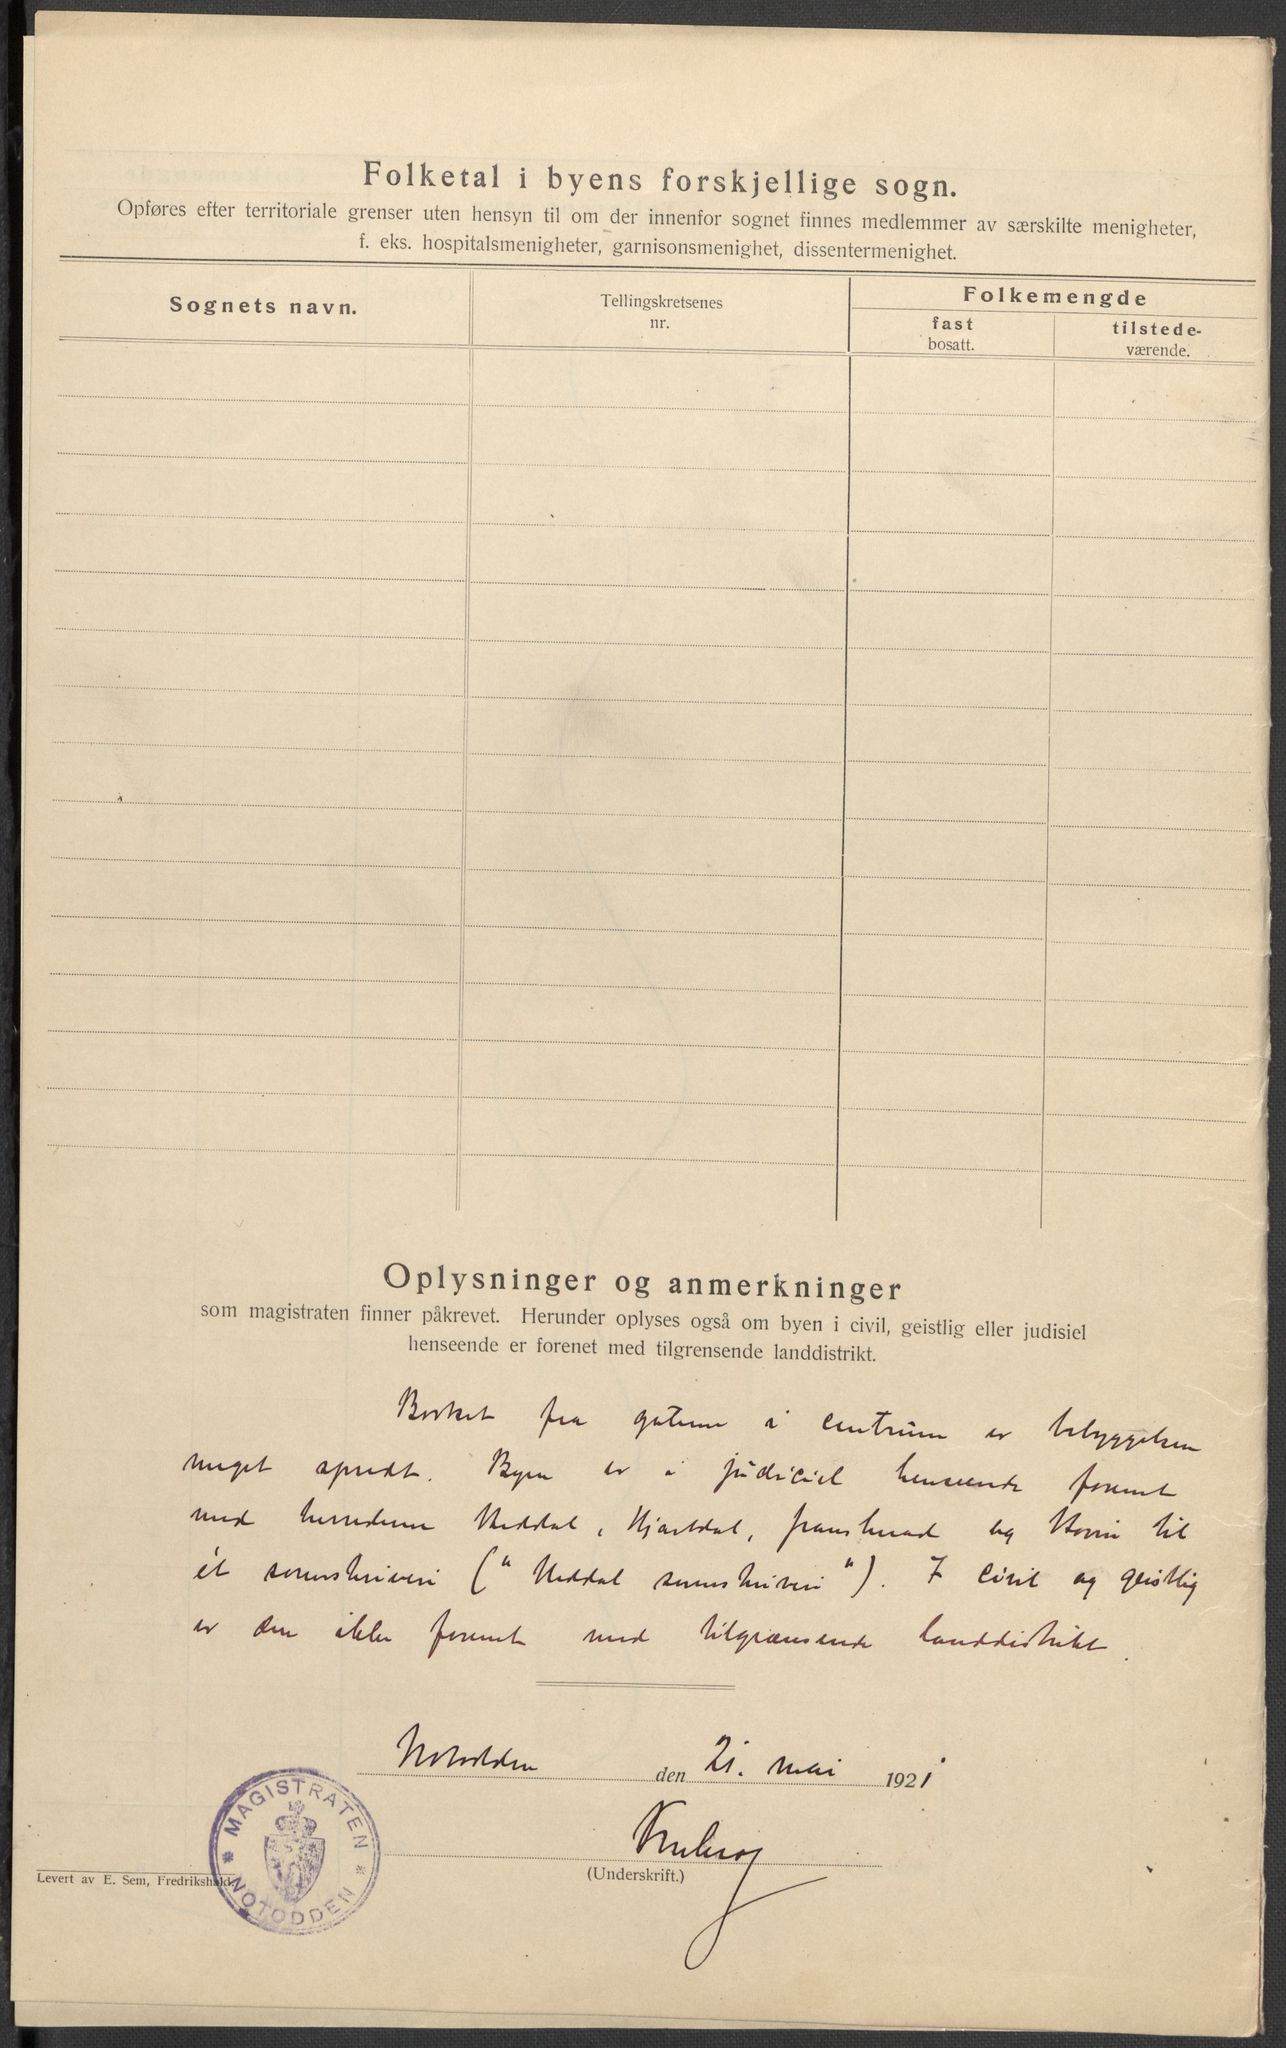 Folketal i byens forskjellige sogn.
Opføres efter territoriale grenser uten hensyn til om der innenfor sognet finnes medlemmer av særskilte menigheter,
f. eks. hospitalsmenigheter, garnisonsmenighet, dissentermenighet.
Sognets navn.
Tellingskretsenes
nr.
Folkemengde
fast
bosatt.
tilstede-
værende.
Oplysninger og anmerkninger
som magistraten finner påkrevet. Herunder oplyses også om byen i civil, geistlig eller judisiel
henseende er forenet med tilgrensende landdistrikt.
Borset fra gatene i centrum er bebyggelsen
meget spredt. Byen er i judiciel henseende forenet
med herrederne Heddal, Hjartdal, Gransherad og Hovin til
ét sorenskriveri ("Heddal sorenskriveri"). I civil og geistlig
er den ikke forenet med tilgrænsende landdistrikt.
Notodden den 21. mai 1921
(Underskrift.)
Levert av E. Sem, Fredrikshald.
MAGISTRATEN
NOTODDEN